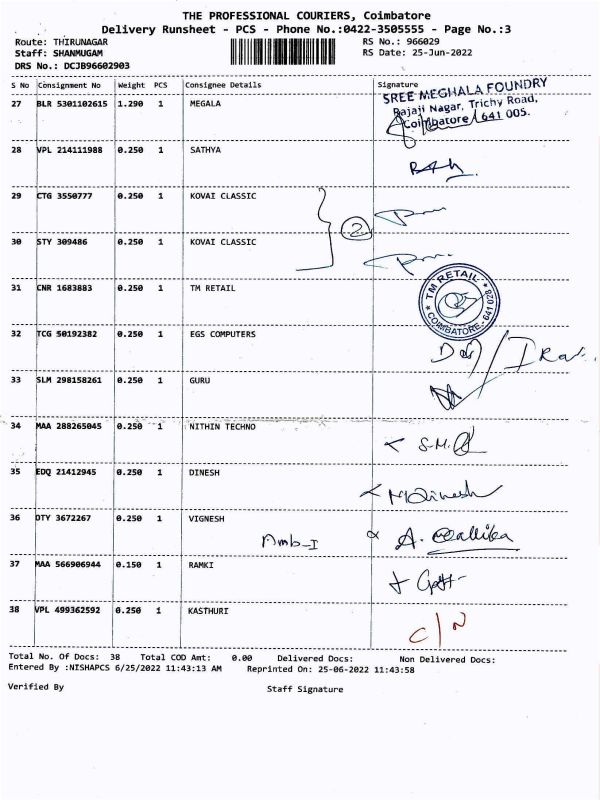 THE PROFESSIONAL COURIERS, Coimbatore
Delivery Runsheet - PCS - Phone No.:0422-3505555 - Page No.:3
Route: THIRUNAGAR
Staff: SHANMUGAM
DRS No.: DCJB96602903
RS No.: 966029
RS Date: 25-Jun-2022
S No Consignment No Weight PCS Consignee Details Signature
27 BLR 5301102615 1.290 1 MEGALA
SREE MEGHALA FOUNDRY
Rajaji Nagar, Trichy Road,
Coimbatore 641 005.
28 VPL 214111988 0.250 1 SATHYA
29 CTG 3550777 0.250 1 KOVAI CLASSIC
2
30 STY 309486 0.250 1 KOVAI CLASSIC
31 CNR 1683883 0.250 1 TM RETAIL
* TM RETAIL *
COIMBATORE. 641 028
32 TCG 50192382 0.250 1 EGS COMPUTERS
33 SLM 298158261 0.250 1 GURU
34 MAA 288265045 0.250 1 NITHIN TECHNO
S.M.
35 EDQ 21412945 0.250 1 DINESH
M Dinesh
36 OTY 3672267 0.250 1 VIGNESH
Amb-I A. Mallika
37 MAA 566906944 0.150 1 RAMKI
38 VPL 499362592 0.250 1 KASTHURI
C/N
Total No. Of Docs: 38 Total COD Amt: 0.00 Delivered Docs: Non Delivered Docs:
Entered By :NISHAPCS 6/25/2022 11:43:13 AM Reprinted On: 25-06-2022 11:43:58
Verified By Staff Signature